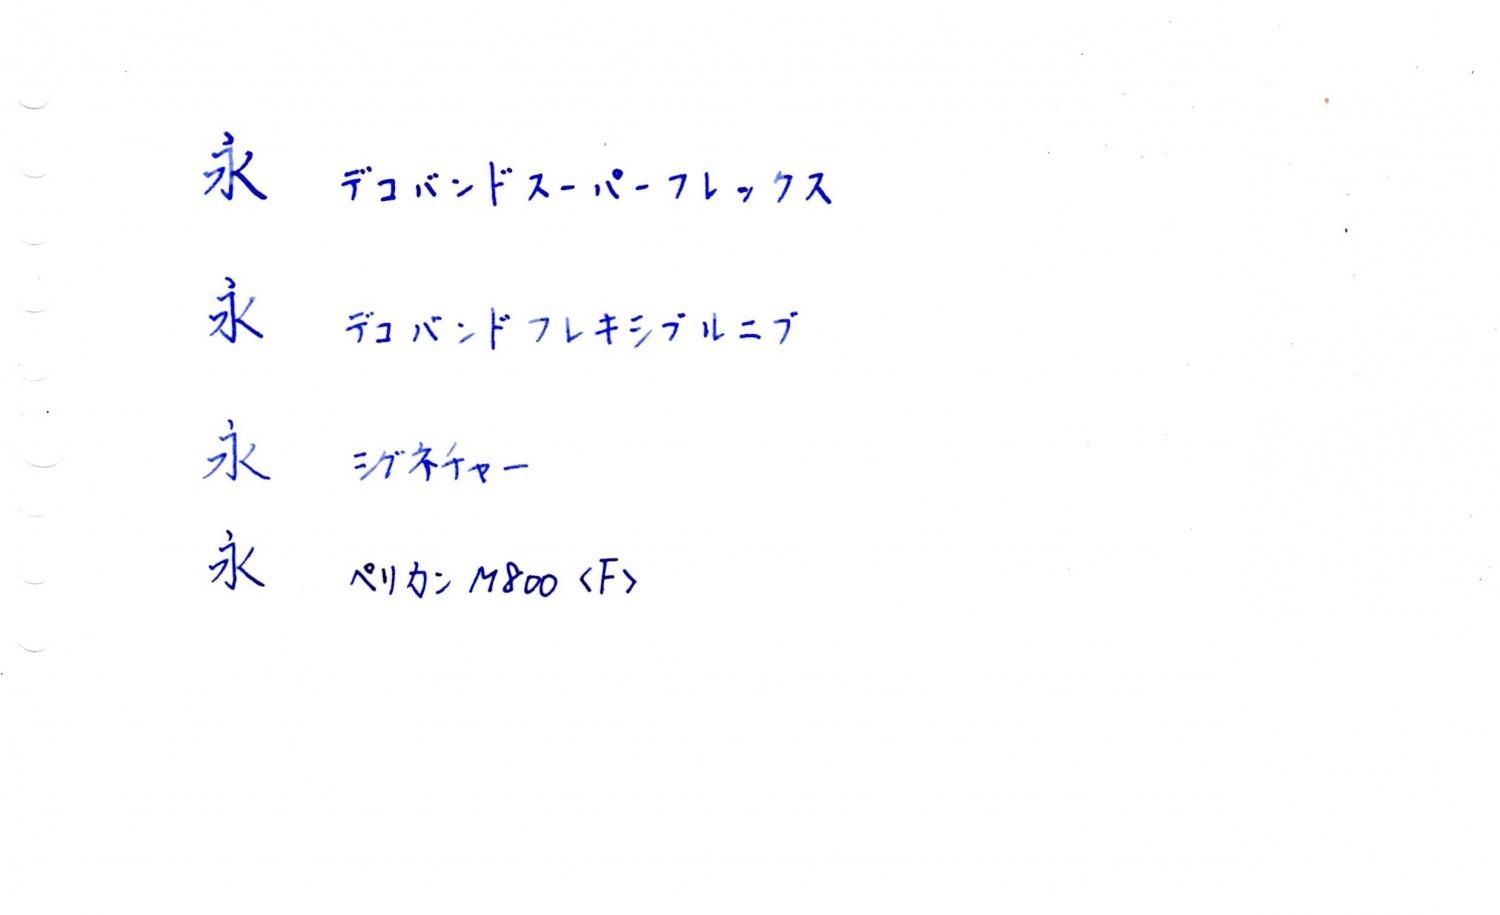 永 デコバンドスーパーフレックス
永 デコバンドフレキシブルニブ
永 シグネチャー
永 ペリカン M800 <F>